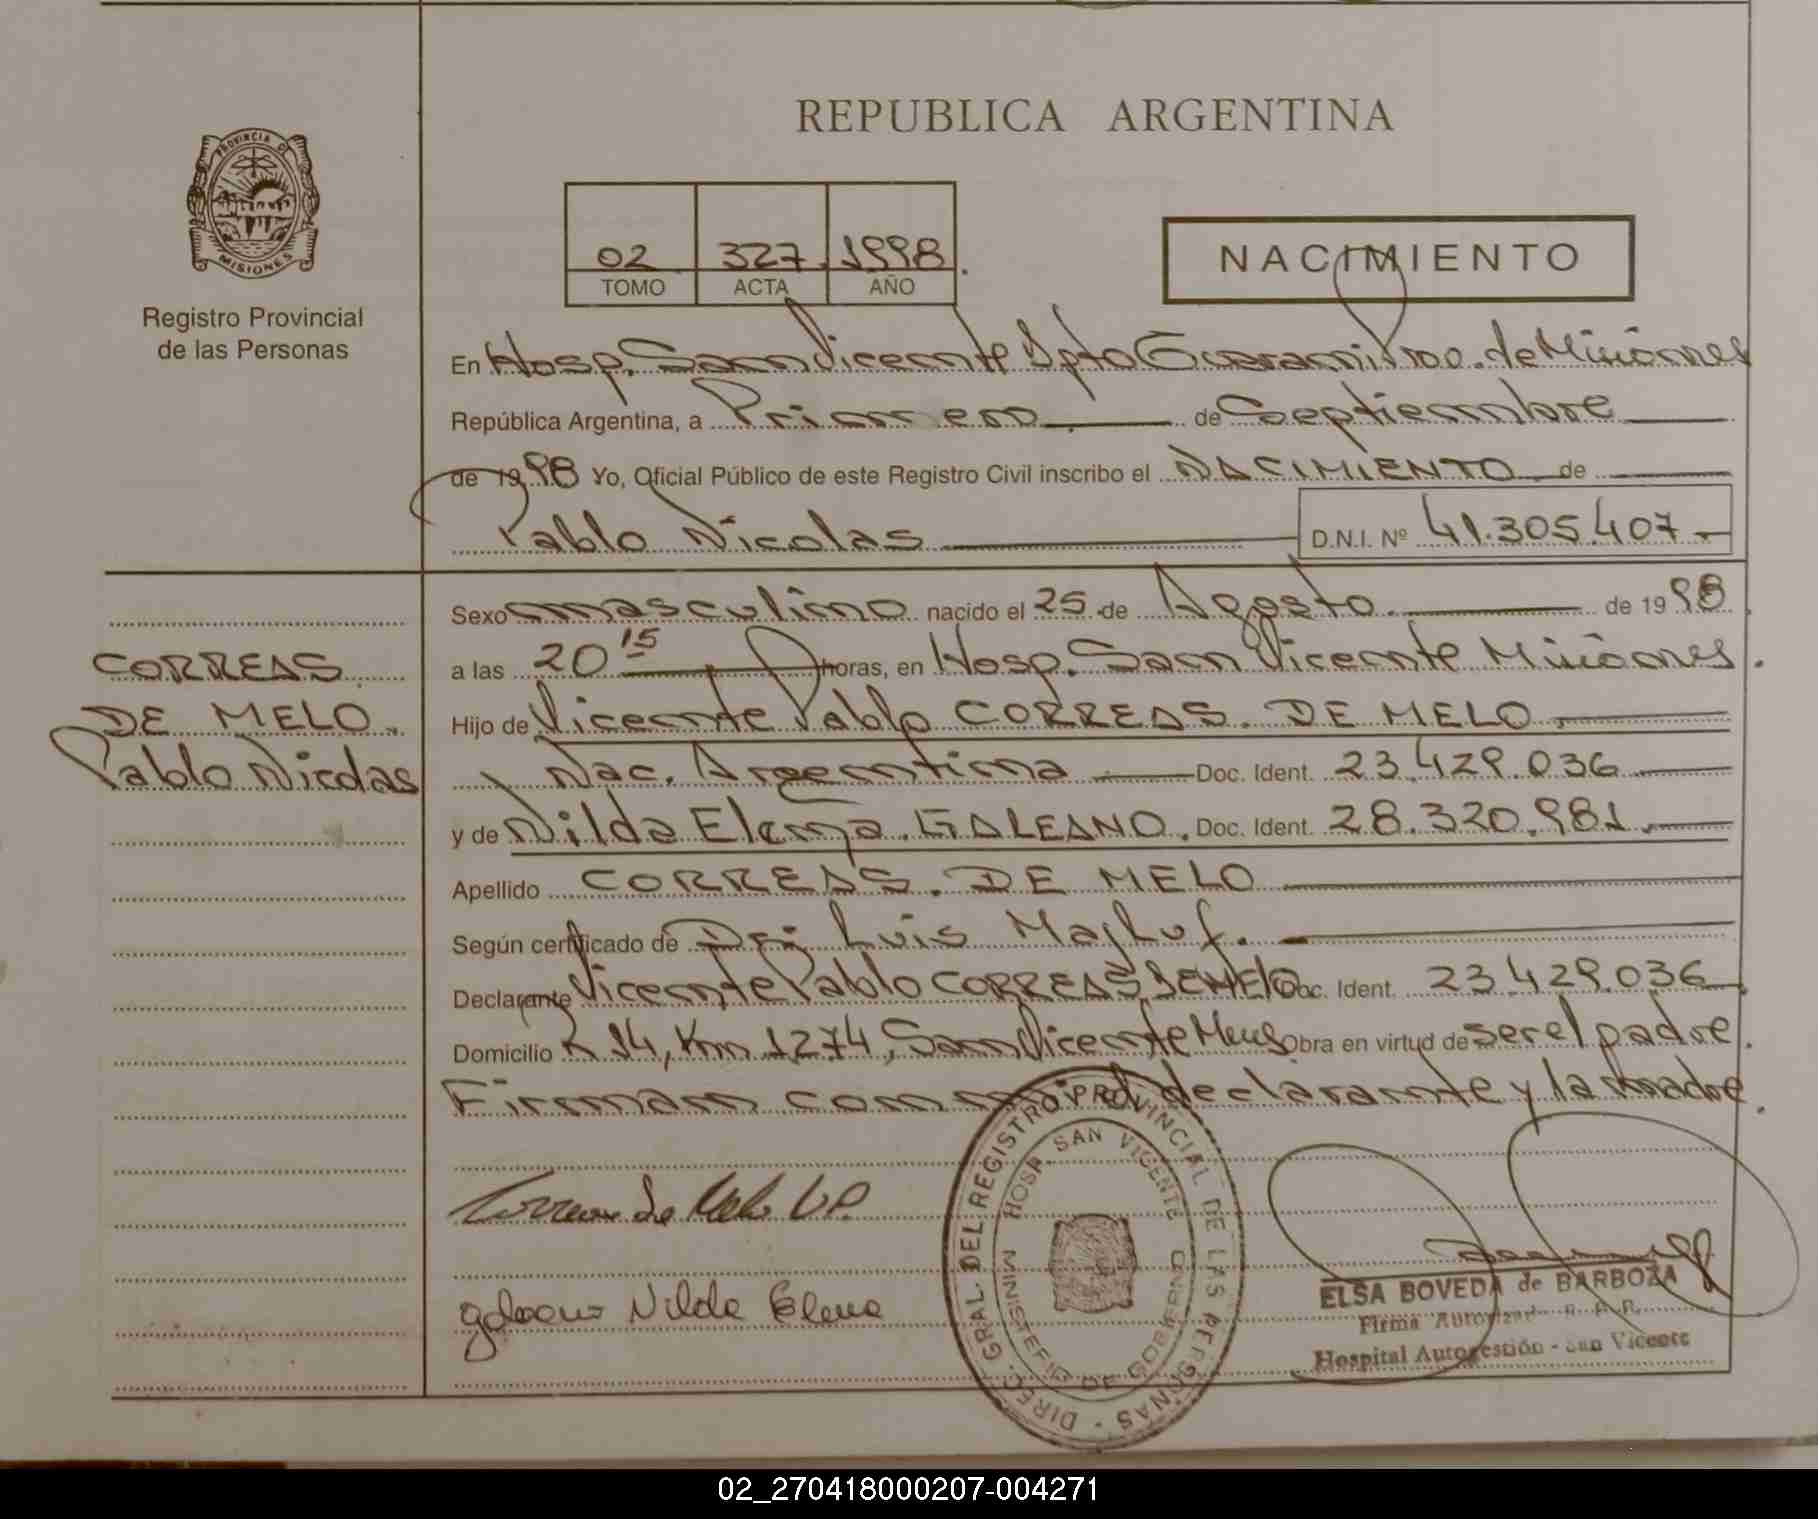 REPUBLICA ARGENTINA
PROVINCIA DE
MISIONES
Registro Provincial
de las Personas
02 327 1998
TOMO ACTA AÑO
NACIMIENTO
En Hosp. San Vicente Dpto Guarani Pro. de Misiones
República Argentina, a Primero de Septiembre
de 1998 Yo, Oficial Público de este Registro Civil inscribo el NACIMIENTO de
Pablo Nicolas D.N.I. Nº 41.305.407.-
CORREAS
DE MELO.
Pablo Nicolas
Sexo masculino nacido el 25 de Agosto de 1998
a las 20 15 horas, en Hosp. San Vicente Misiones.
Hijo de Vicente Pablo CORREAS. DE MELO.
Nac. Argentina Doc. Ident. 23.429.036
y de Nilda Elena. GALEANO. Doc. Ident. 28.320.981.
Apellido CORREAS. DE MELO
Según certificado de Dr: Luis Majluf.
Declarante Vicente Pablo CORREAS DE MELO Doc. Ident. 23.429.036
Domicilio R 14, Km 1274, San Vicente Obra en virtud de ser el padre.
Firman con mi el declarante y la madre.
Correas de Melo V.P.
galeano Nilda Elena
DIREC. GRAL. DEL REGISTRO PROVINCIAL DE LAS PERSONAS -
HOSP. SAN VICENTE
MINISTERIO DE GOBIERNO
ELSA BOVEDA de BARBOZA
Firma Autorizada
Hospital Autogestión - San Vicente
02_270418000207-004271